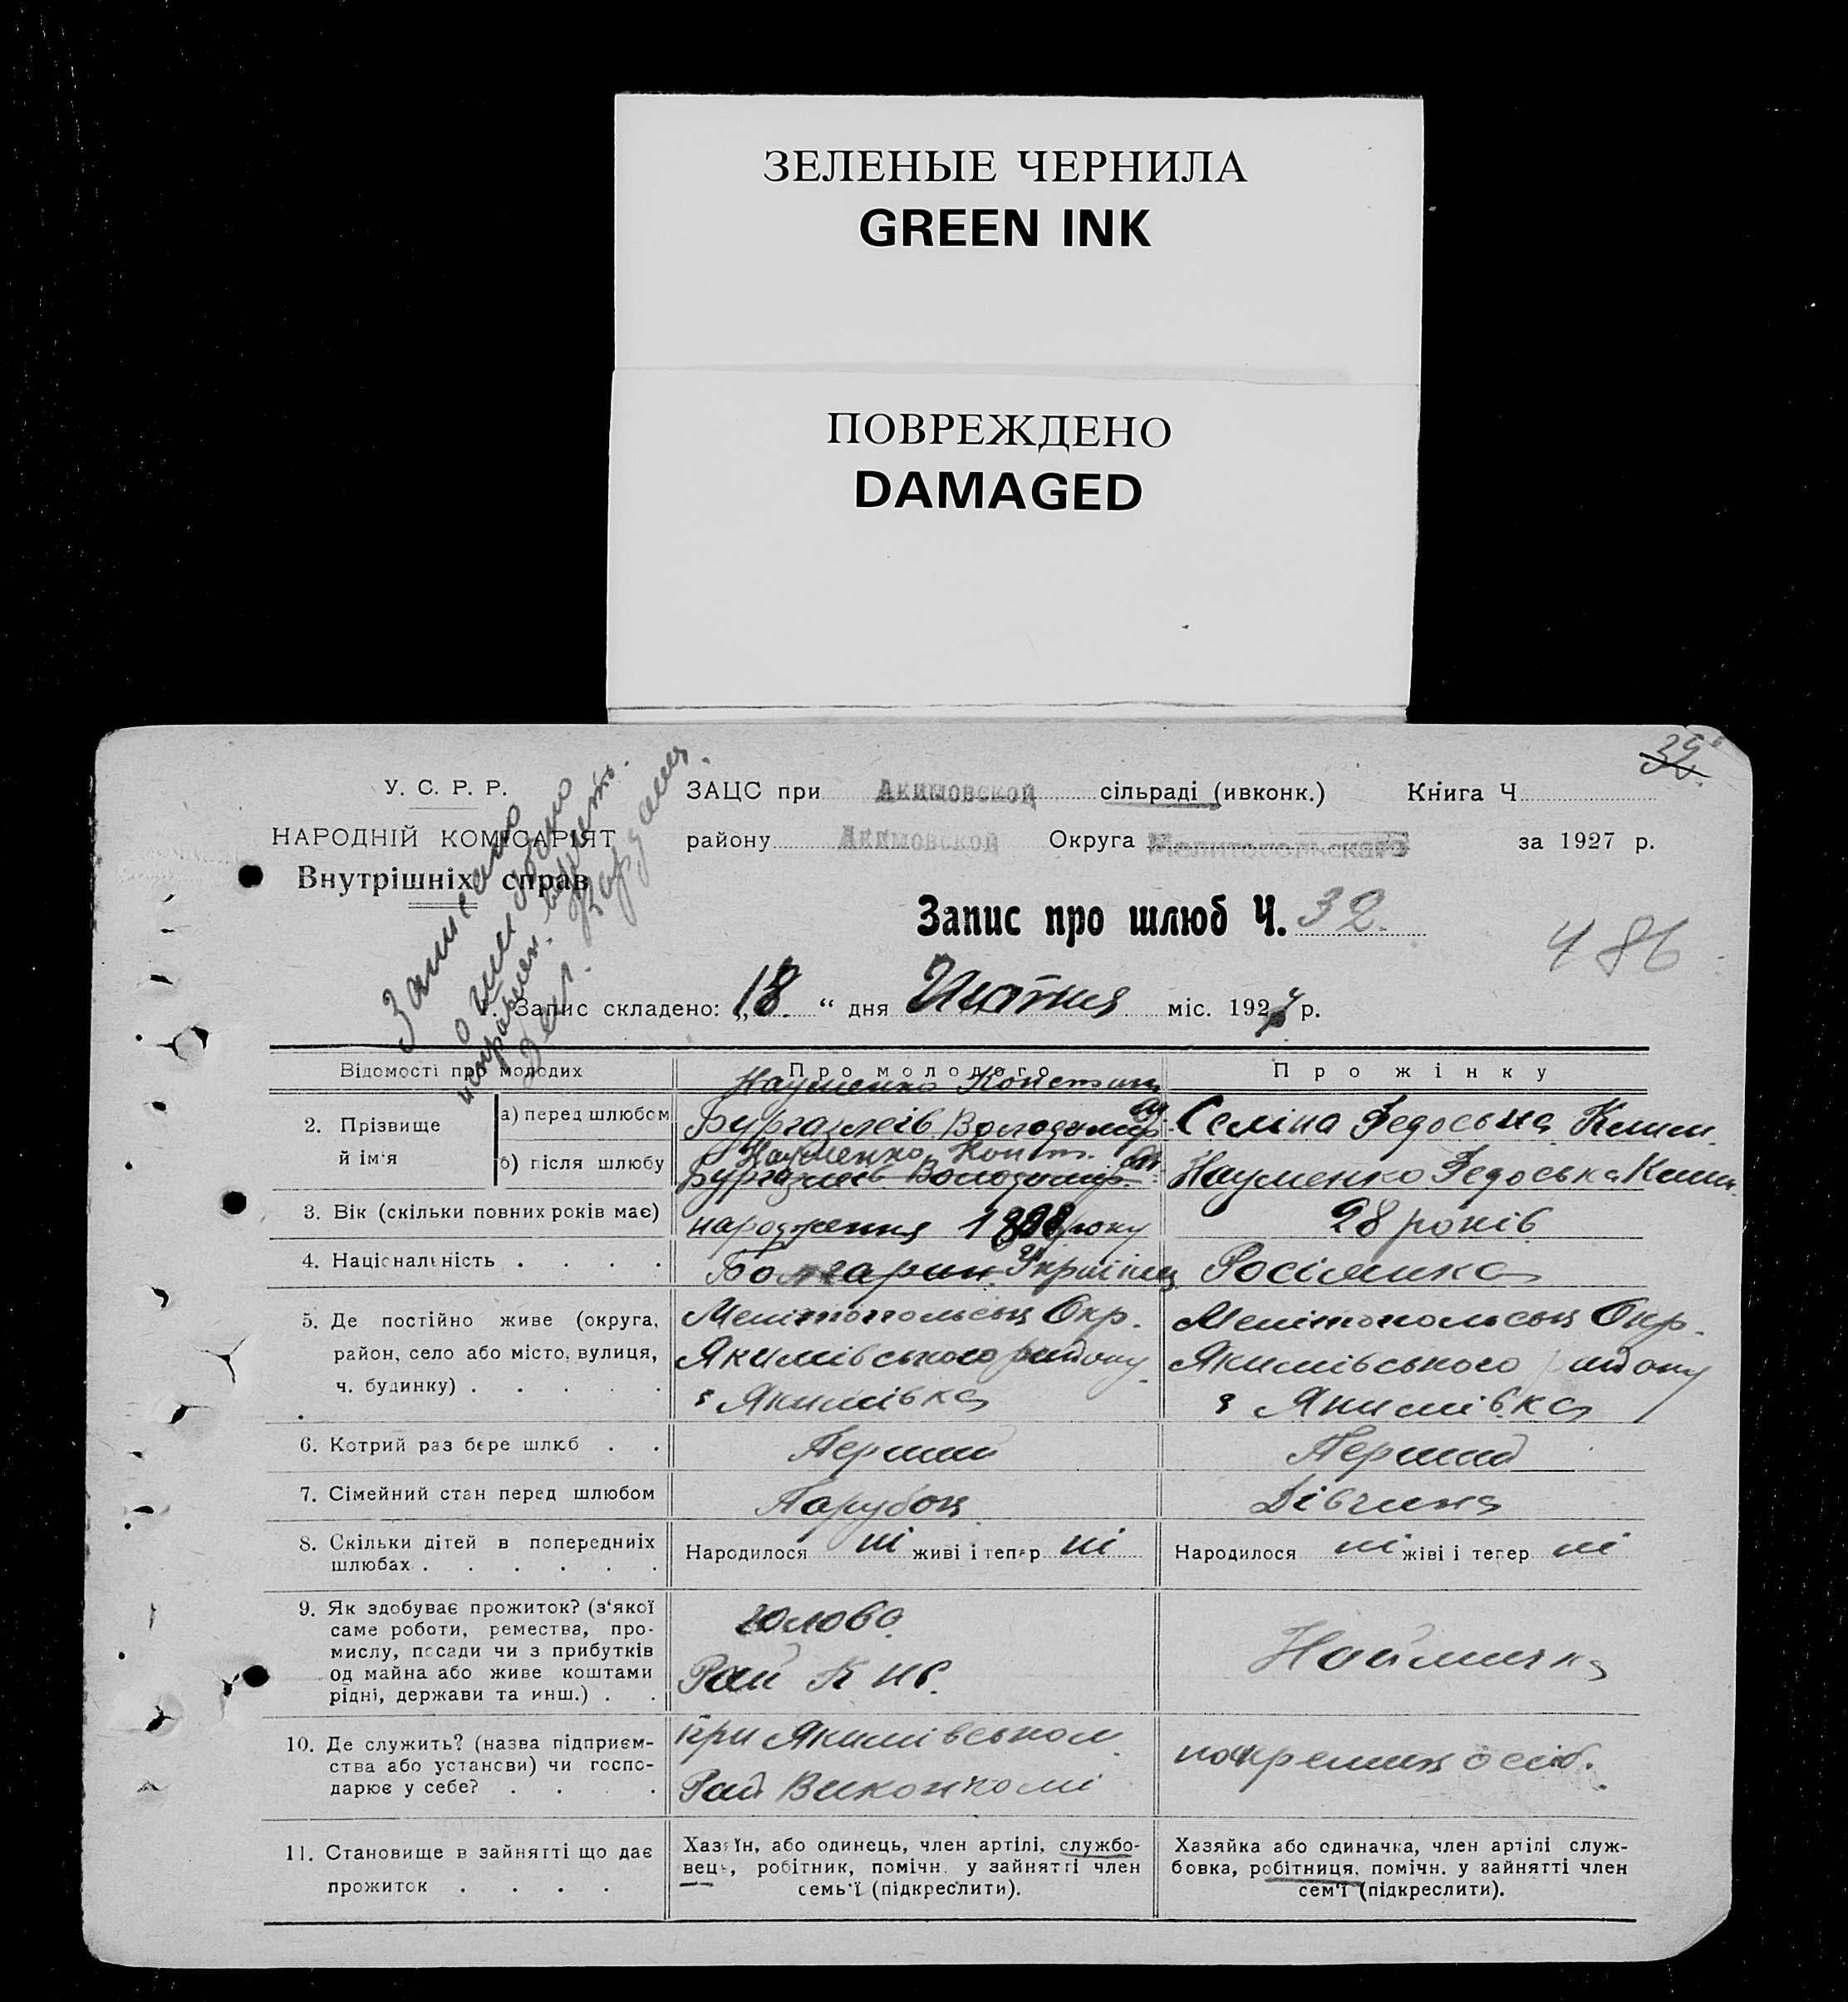 ЗЕЛЕНЫЕ ЧЕРНИЛА
GREEN INK
ПОВРЕЖДЕНО
DAMAGED
35
У. С. Р. Р.
НАРОДНІЙ КОМІСАРІЯТ
Внутрішніх справ
ЗАЦС при Акимовской сільраді (ивконк.) Книга Ч.
району Акимовской Округа Мелитопольскаго за 1927 р.
Записано
Запис про шлюб Ч. 32.
486
1. Запис складено: „18." дня міс. 1927 р.
Відомості про молодих Про молодого Про жінку
Науменко Констант
2. Прізвище й ім'я
а) перед шлюбом Володимир Селіна Федоська Клим.
Науменко Конст.
б) після шлюбу Володимир Науменко Федоська Клим.
3. Вік (скільки повних років має) народження 1898 року 28 років
4. Національність . . . . Болгарин Українец Росіянка
5. Де постійно живе (округа, район, село або місто, вулиця, ч. будинку) . . . . .
Мелітопольськ Окр. Мелітопольськ Окр.
Якимівського району Якимівського району
з Якимівка з Якимівка
6. Котрий раз бере шлюб . . Перший Перший
7. Сімейний стан перед шлюбом Парубок Дівчина
8. Скільки дітей в попередніх шлюбах . . . . . .
Народилося ні живі і тепер ні Народилося ні живі і тепер ні
9. Як здобуває прожиток? (з'якої саме роботи, ремества, промислу, посади чи з прибутків од майна або живе коштами рідні, держави та инш.) . .
Голова
Рай К НС. Наймичка
10. Де служить? (назва підприємства або установи) чи господарює у себе? . . .
при Якимівськом
Рай Виконкомі осіб.
11. Становище в зайнятті що дає прожиток . . . .
Хазяїн, або одинець, член артілі, службовець, робітник, помічн. у зайнятті член семь'ї (підкреслити).
Хазяйка або одиначка, член артілі службовка, робітниця, помічн. у зайнятті член сем'ї (підкреслити).